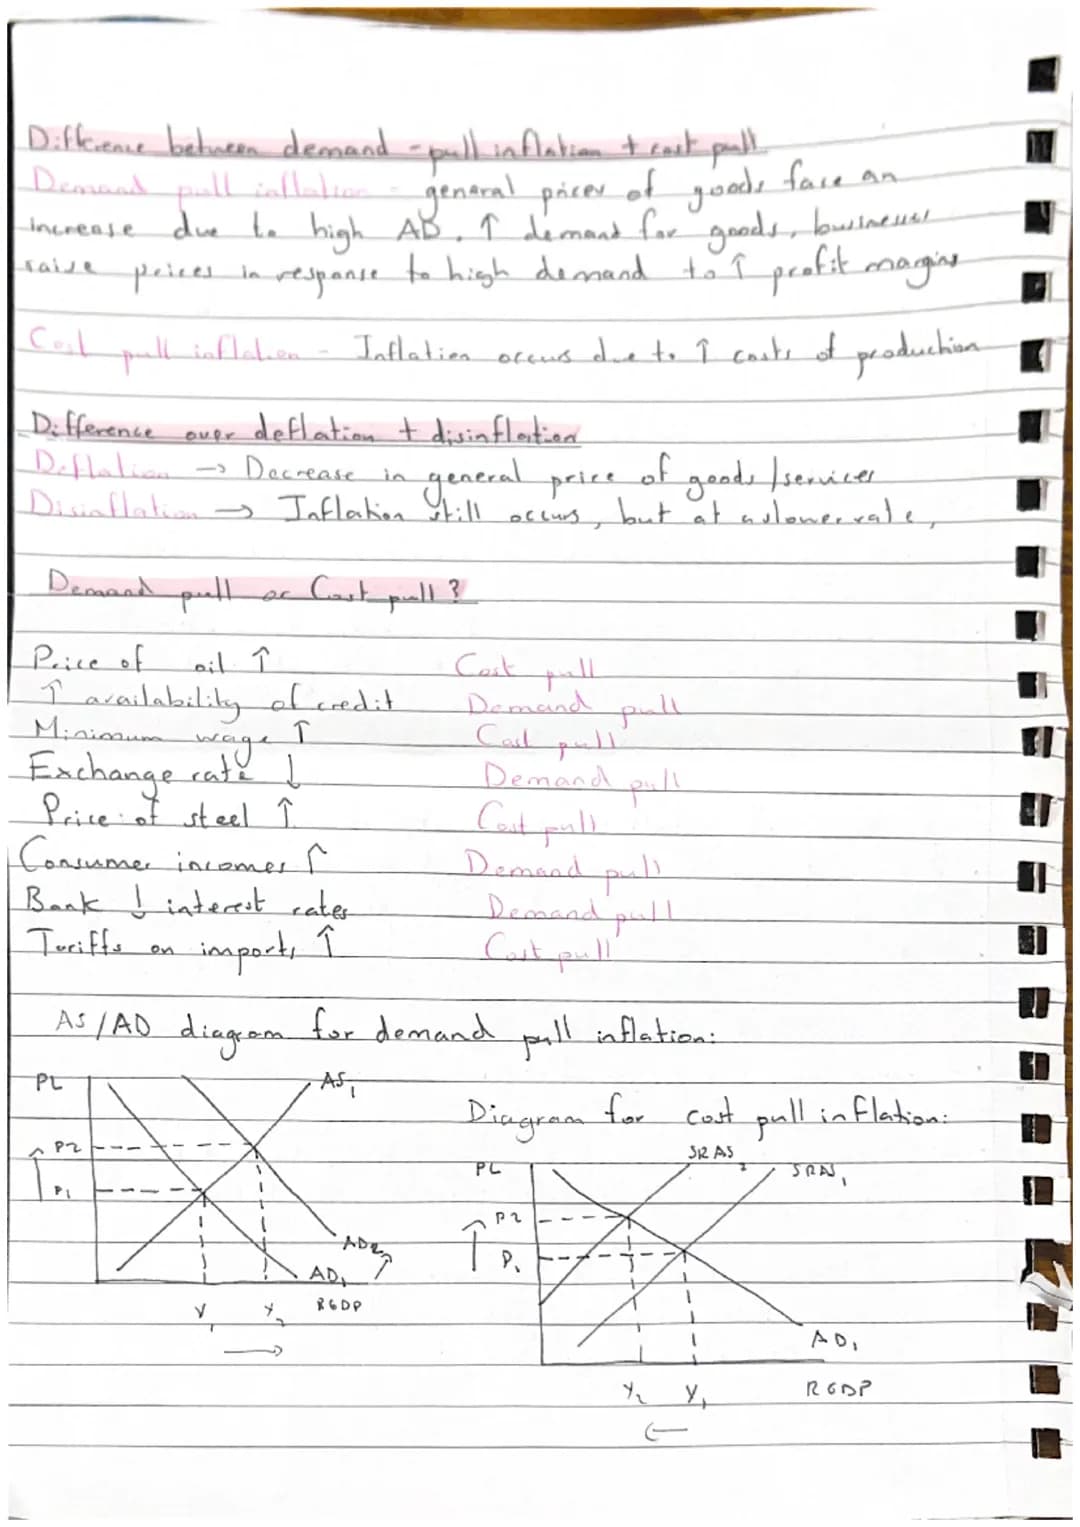 Difference between demand - pull inflation + cost pull
Demand pull inflation - general prices of goods face an
increase due to high AD. ↑ demand for goods, businesses
raise prices in response to high demand to ↑ profit margins
Cost pull inflation - Inflation occurs due to ↑ costs of production
Difference over deflation + disinflation
Deflation → Decrease in general price of goods/services
Disinflation → Inflation still occurs, but at a slower rate,
Demand pull or Cost pull?
Price of oil ↑ Cost pull
↑ availability of credit Demand pull
Minimum wage ↑ Cost pull
Exchange rate ↓ Demand pull
Price of steel ↑ Cost pull
Consumer incomes ↑ Demand pull
Bank ↓ interest rates Demand pull
Tariffs on imports ↑ Cost pull
AS/AD diagram for demand pull inflation:
PL AS1
P2
P1
AD2
AD1
Y1 Y2 RGDP
→
Diagram for cost pull inflation:
PL SRAS2 SRAS1
P2
P1
AD1
Y2 Y1 RGDP
←